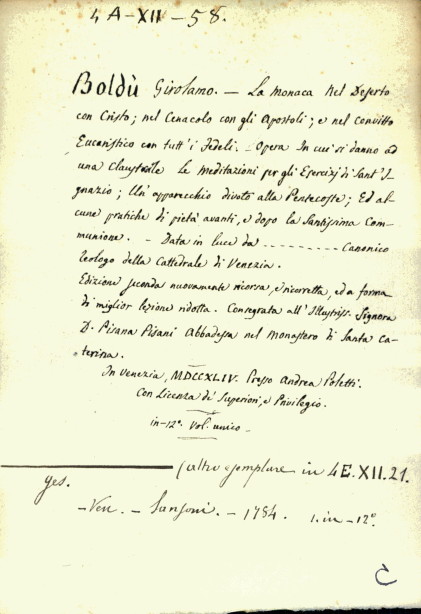 4 A-XII-58.
Boldù Girolamo. - La Monaca nel Deserto
con Cristo; nel Cenacolo con gli Apostoli; e nel Convitto
Eucaristico con tutt'i Fedeli. - Opera In cui si danno ad
una Claustrale Le Meditazioni per gli Esercizj di Sant'I-
gnazio; Un'apparecchio divoto alla Pentecoste; Ed al-
cune pratiche di pietà avanti, e dopo la Santissima Com-
munione. - Data in luce da - - - - - - - - - Canonico
Teologo della Cattedrale di Venezia.
Edizione seconda nuovamente ricorsa, e ricorretta, ed a forma
di miglior lezione ridotta. Consegrata all'Illustriss. Signora
D. Pisana Pisani Abbadessa nel Monastero di Santa Ca-
terina.
In Venezia, MDCCXLIV. Presso Andrea Poletti.
Con Licenza de' Superiori, e Privilegio.
in-12º. Vol. unico -
(altro esemplare in 4E.XII.21.
- Ven. - Sansoni. - 1784. 1. in - 12º
C